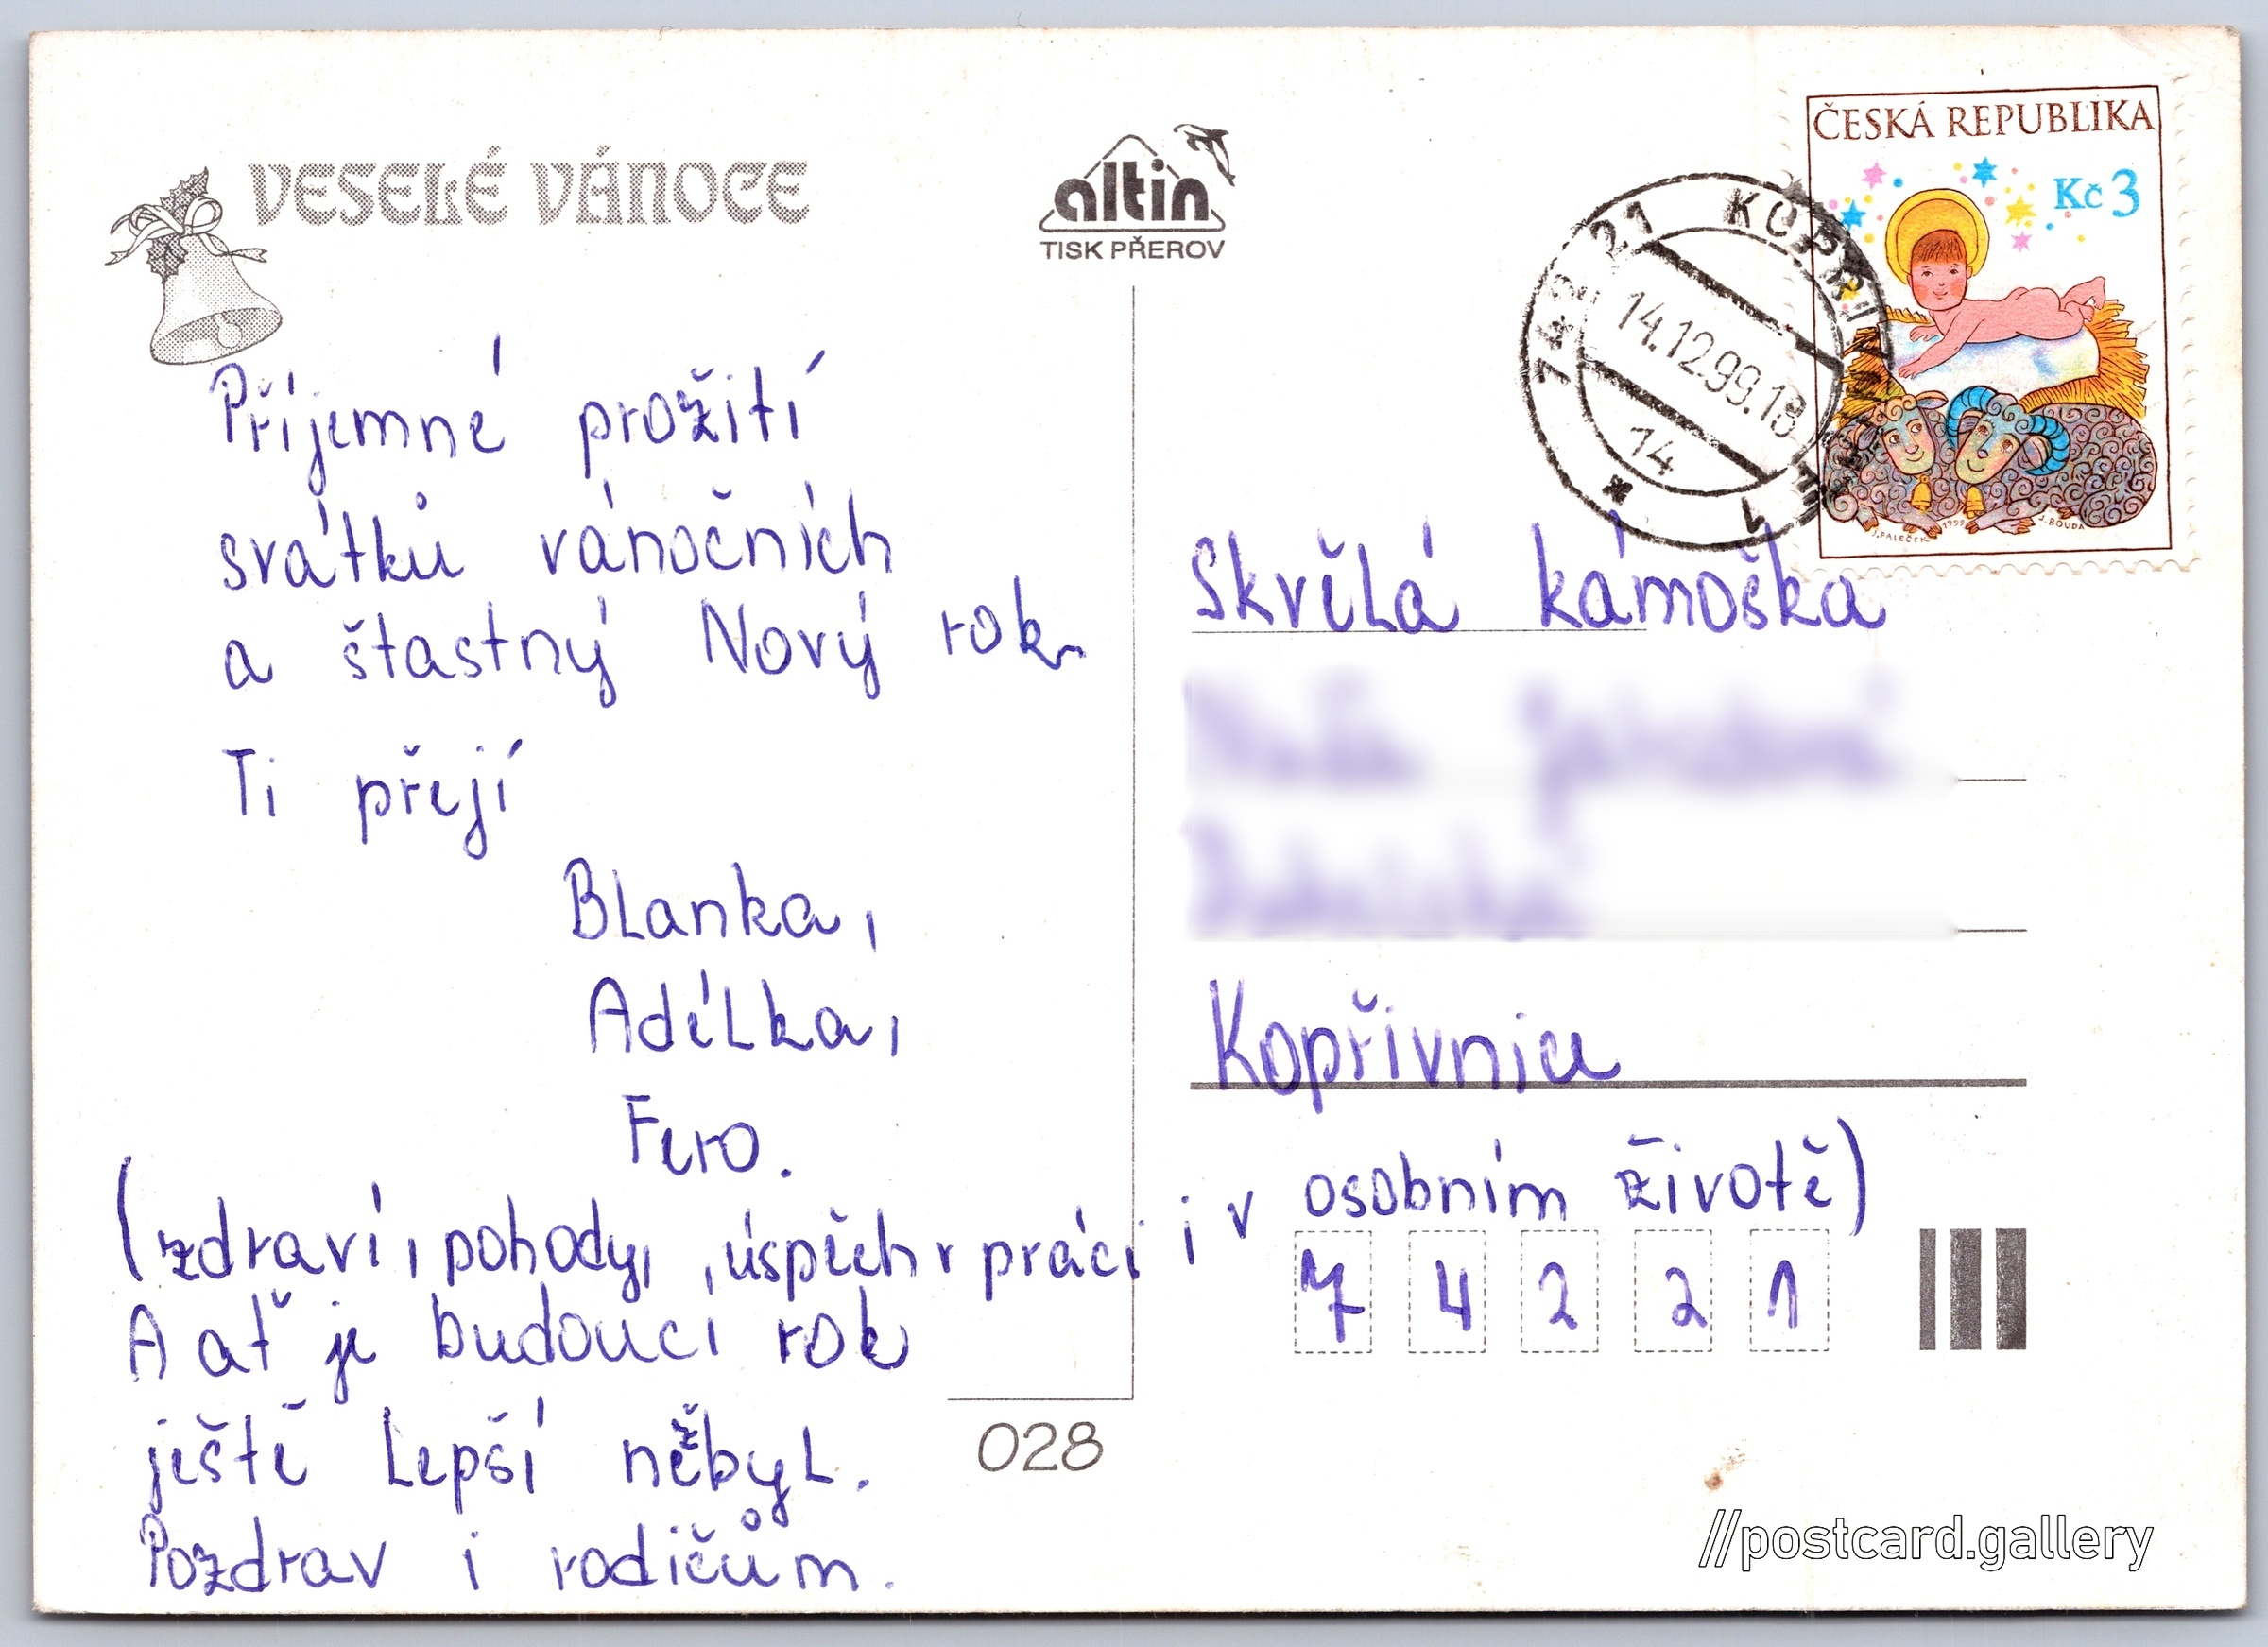 VESELÉ VÁNOCE
altin
TISK PŘEROV
ČESKÁ REPUBLIKA
Kč 3
J. PALEČEK 1999 J. BOUDA
742 21 KOPŘI
14.12.99.18
14
Příjemné prožití
svátků vánočních
a štastný Nový rok
Ti přejí
Blanka,
Adélka,
Fero.
(zdraví, pohody, úspěch v práci i v osobním životě)
A ať je budoucí rok
ještě lepší něžbyl.
Pozdrav i rodičům.
028
Skvělá kámoška
Kopřivnice
7 4 2 2 1
//postcard.gallery